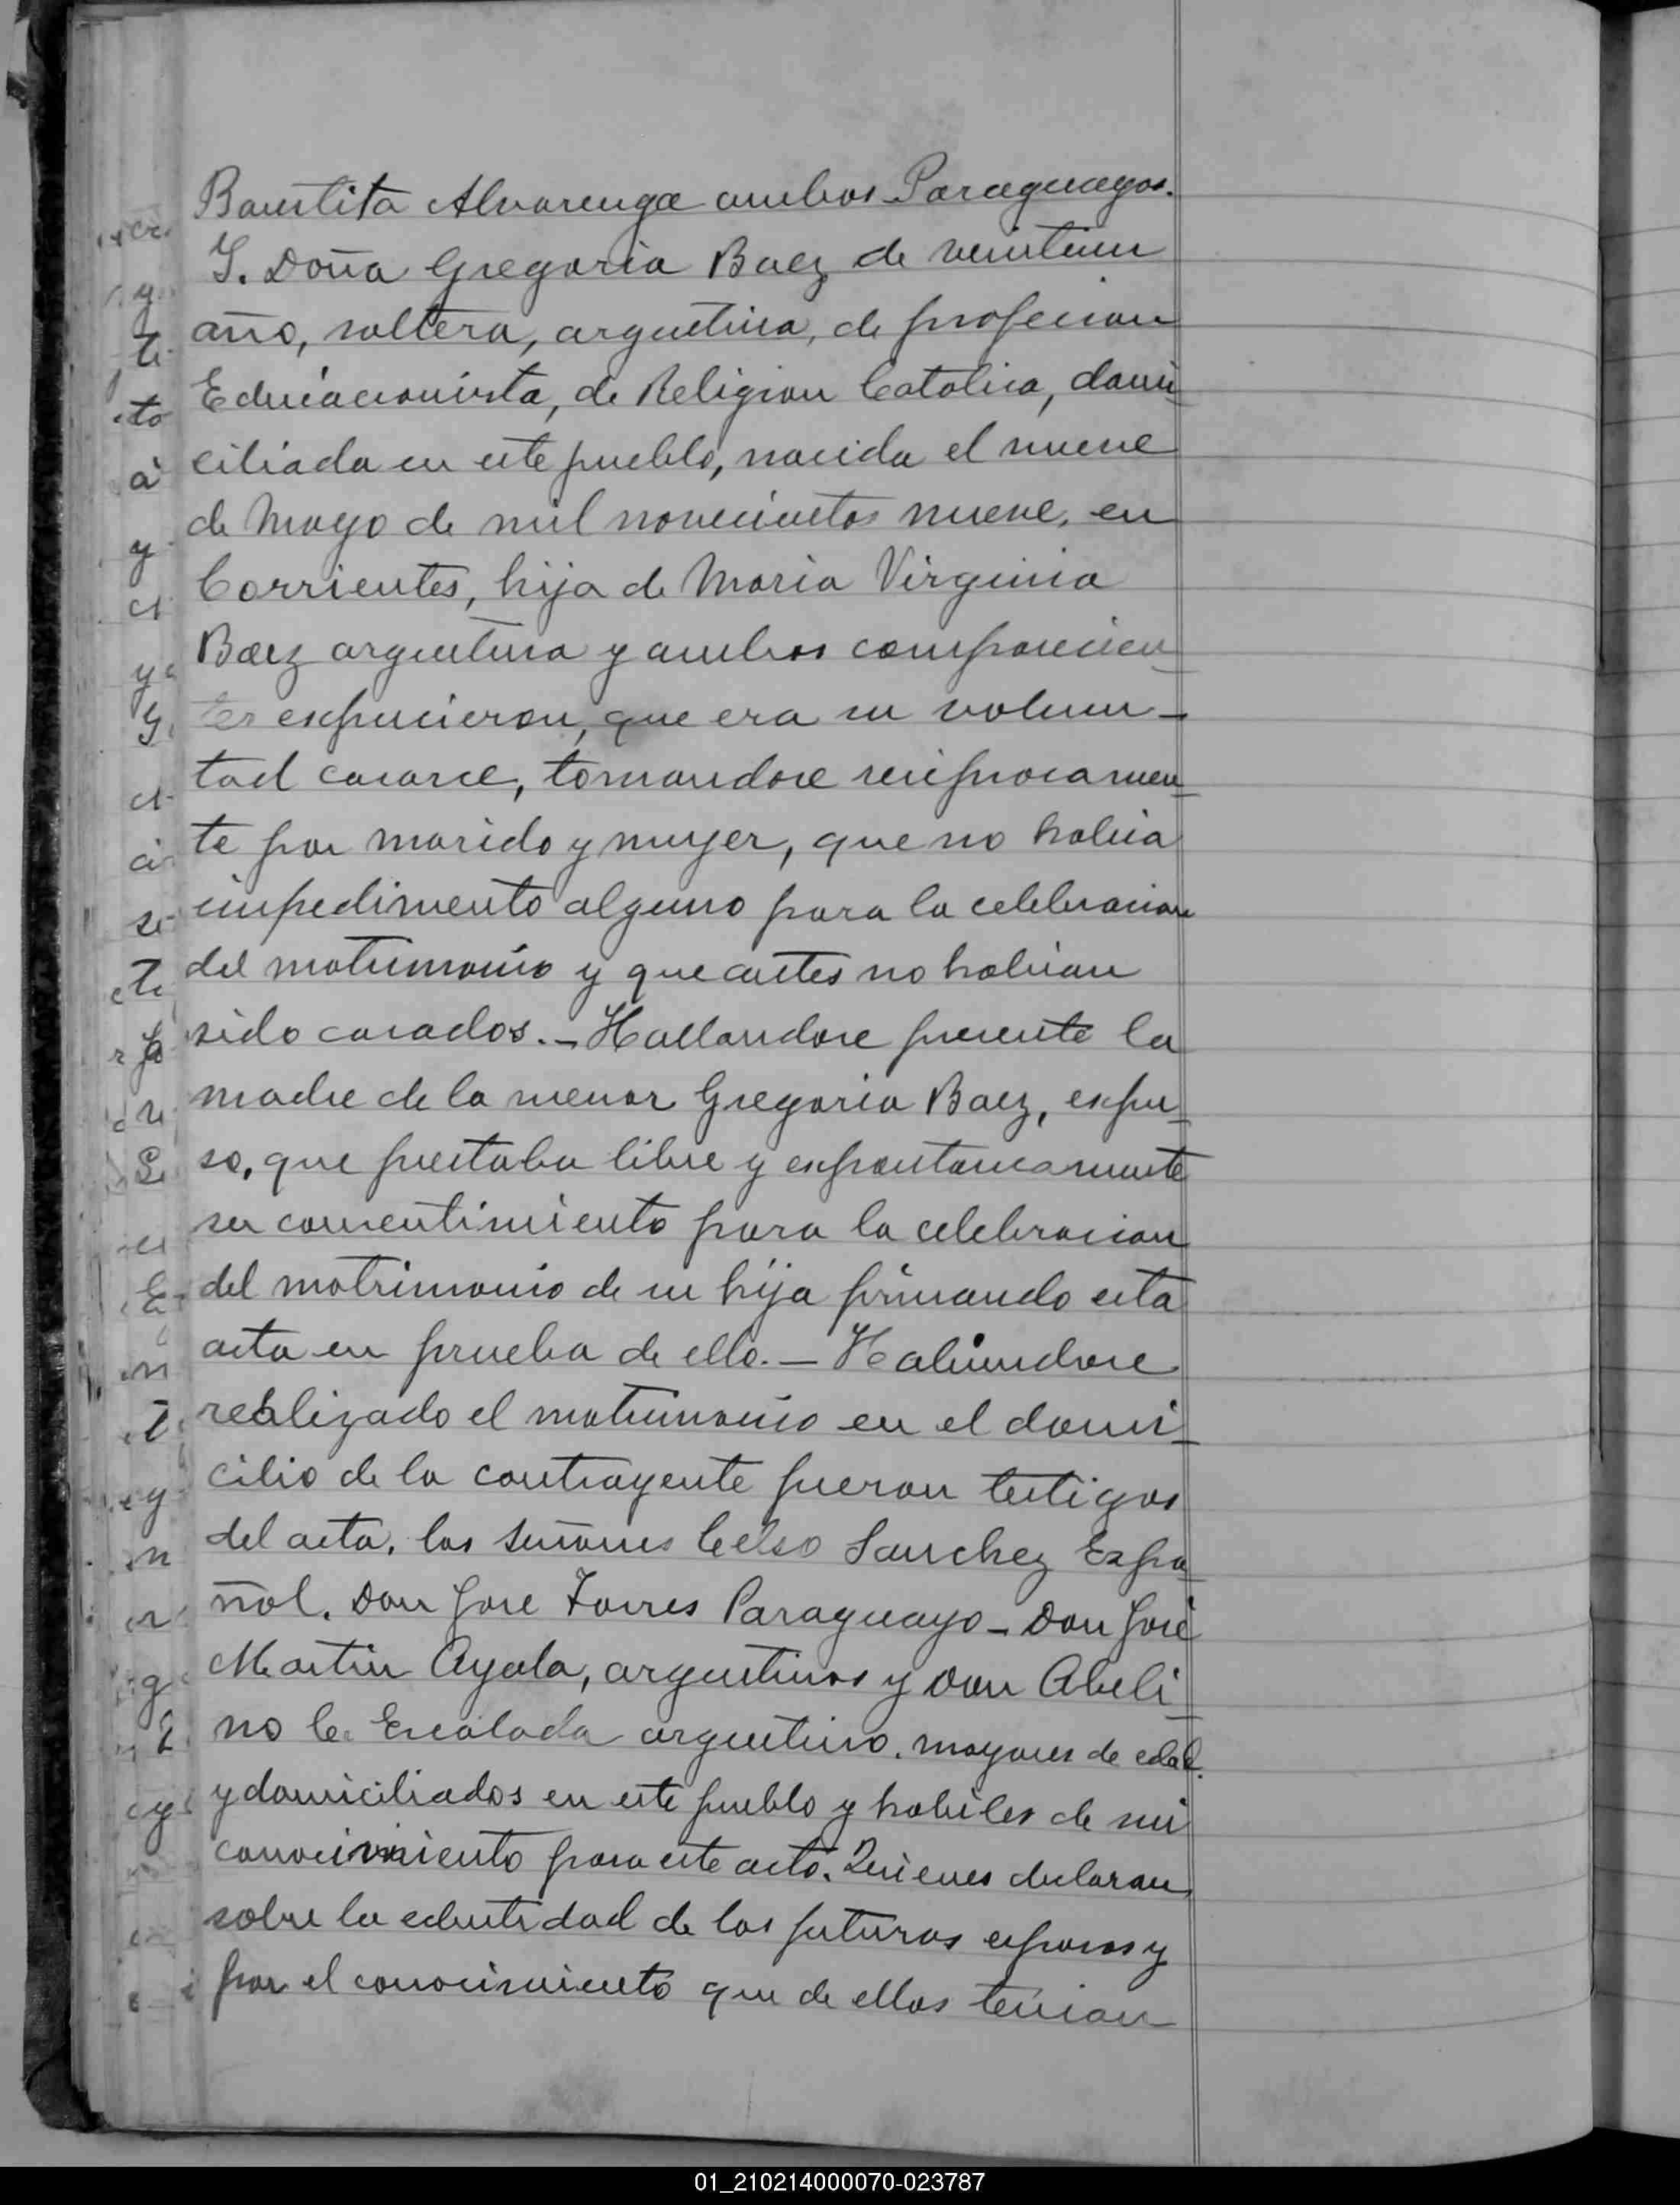 Bautista Alvarenga ambos Paraguayos.
Y. Doña Gregoria Baez de veintiun
año, soltera, argentina, de profecion
Educacionista, de Religion Catolica, domi
ciliada en este pueblo, nacida el nueve
de Mayo de mil novecientos nueve, en
Corrientes, hija de Maria Virginia
Baez argentina y ambos comparecien
tes expucieron, que era su volun-
tad casarse, tomandose reciprocamen
te por marido y muger, que no habia
impedimento alguno para la celebracion
del matrimonio y que antes no habian
sido casados.- Hallandose presente la
madre de la menor Gregoria Baez, expu
so, que prestaba libre y expontaneamente
su consentimiento para la celebracion
del matrimonio de su hija firmando esta
acta en prueba de ello.- Habiendose
realizado el matrimonio en el domi
cilio de la contrayente fueron testigos
del acta, los señores Celso Sanchez Espa
ñol. Don Jose Torres Paraguayo - Don José
Martin Ayala, argentinos y Don Abeli
no C. Escalada argentino. mayores de edad.
y domiciliados en este pueblo y habiles de mi
conocimiento para este acto. Quienes declaran
sobre la edentidad de los futuros esposos y
por el conocimiento que de ellos tenian
01_210214000070-023787